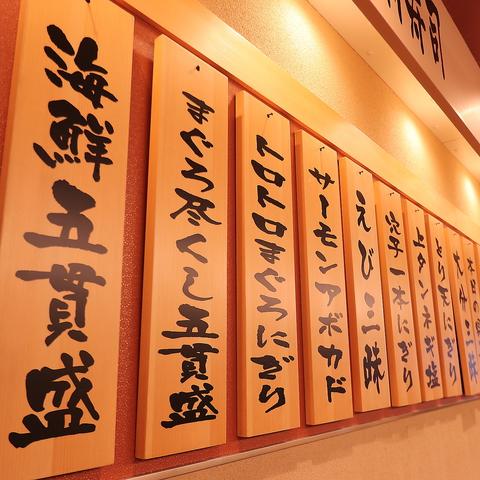 海鮮五貫盛
まぐろ尽くし五貫盛
トロトロまぐろにぎり
サーモンアボカド
えび三昧
穴子一本にぎり
上タンネギ塩
とり天にぎり
大介三昧
本日の